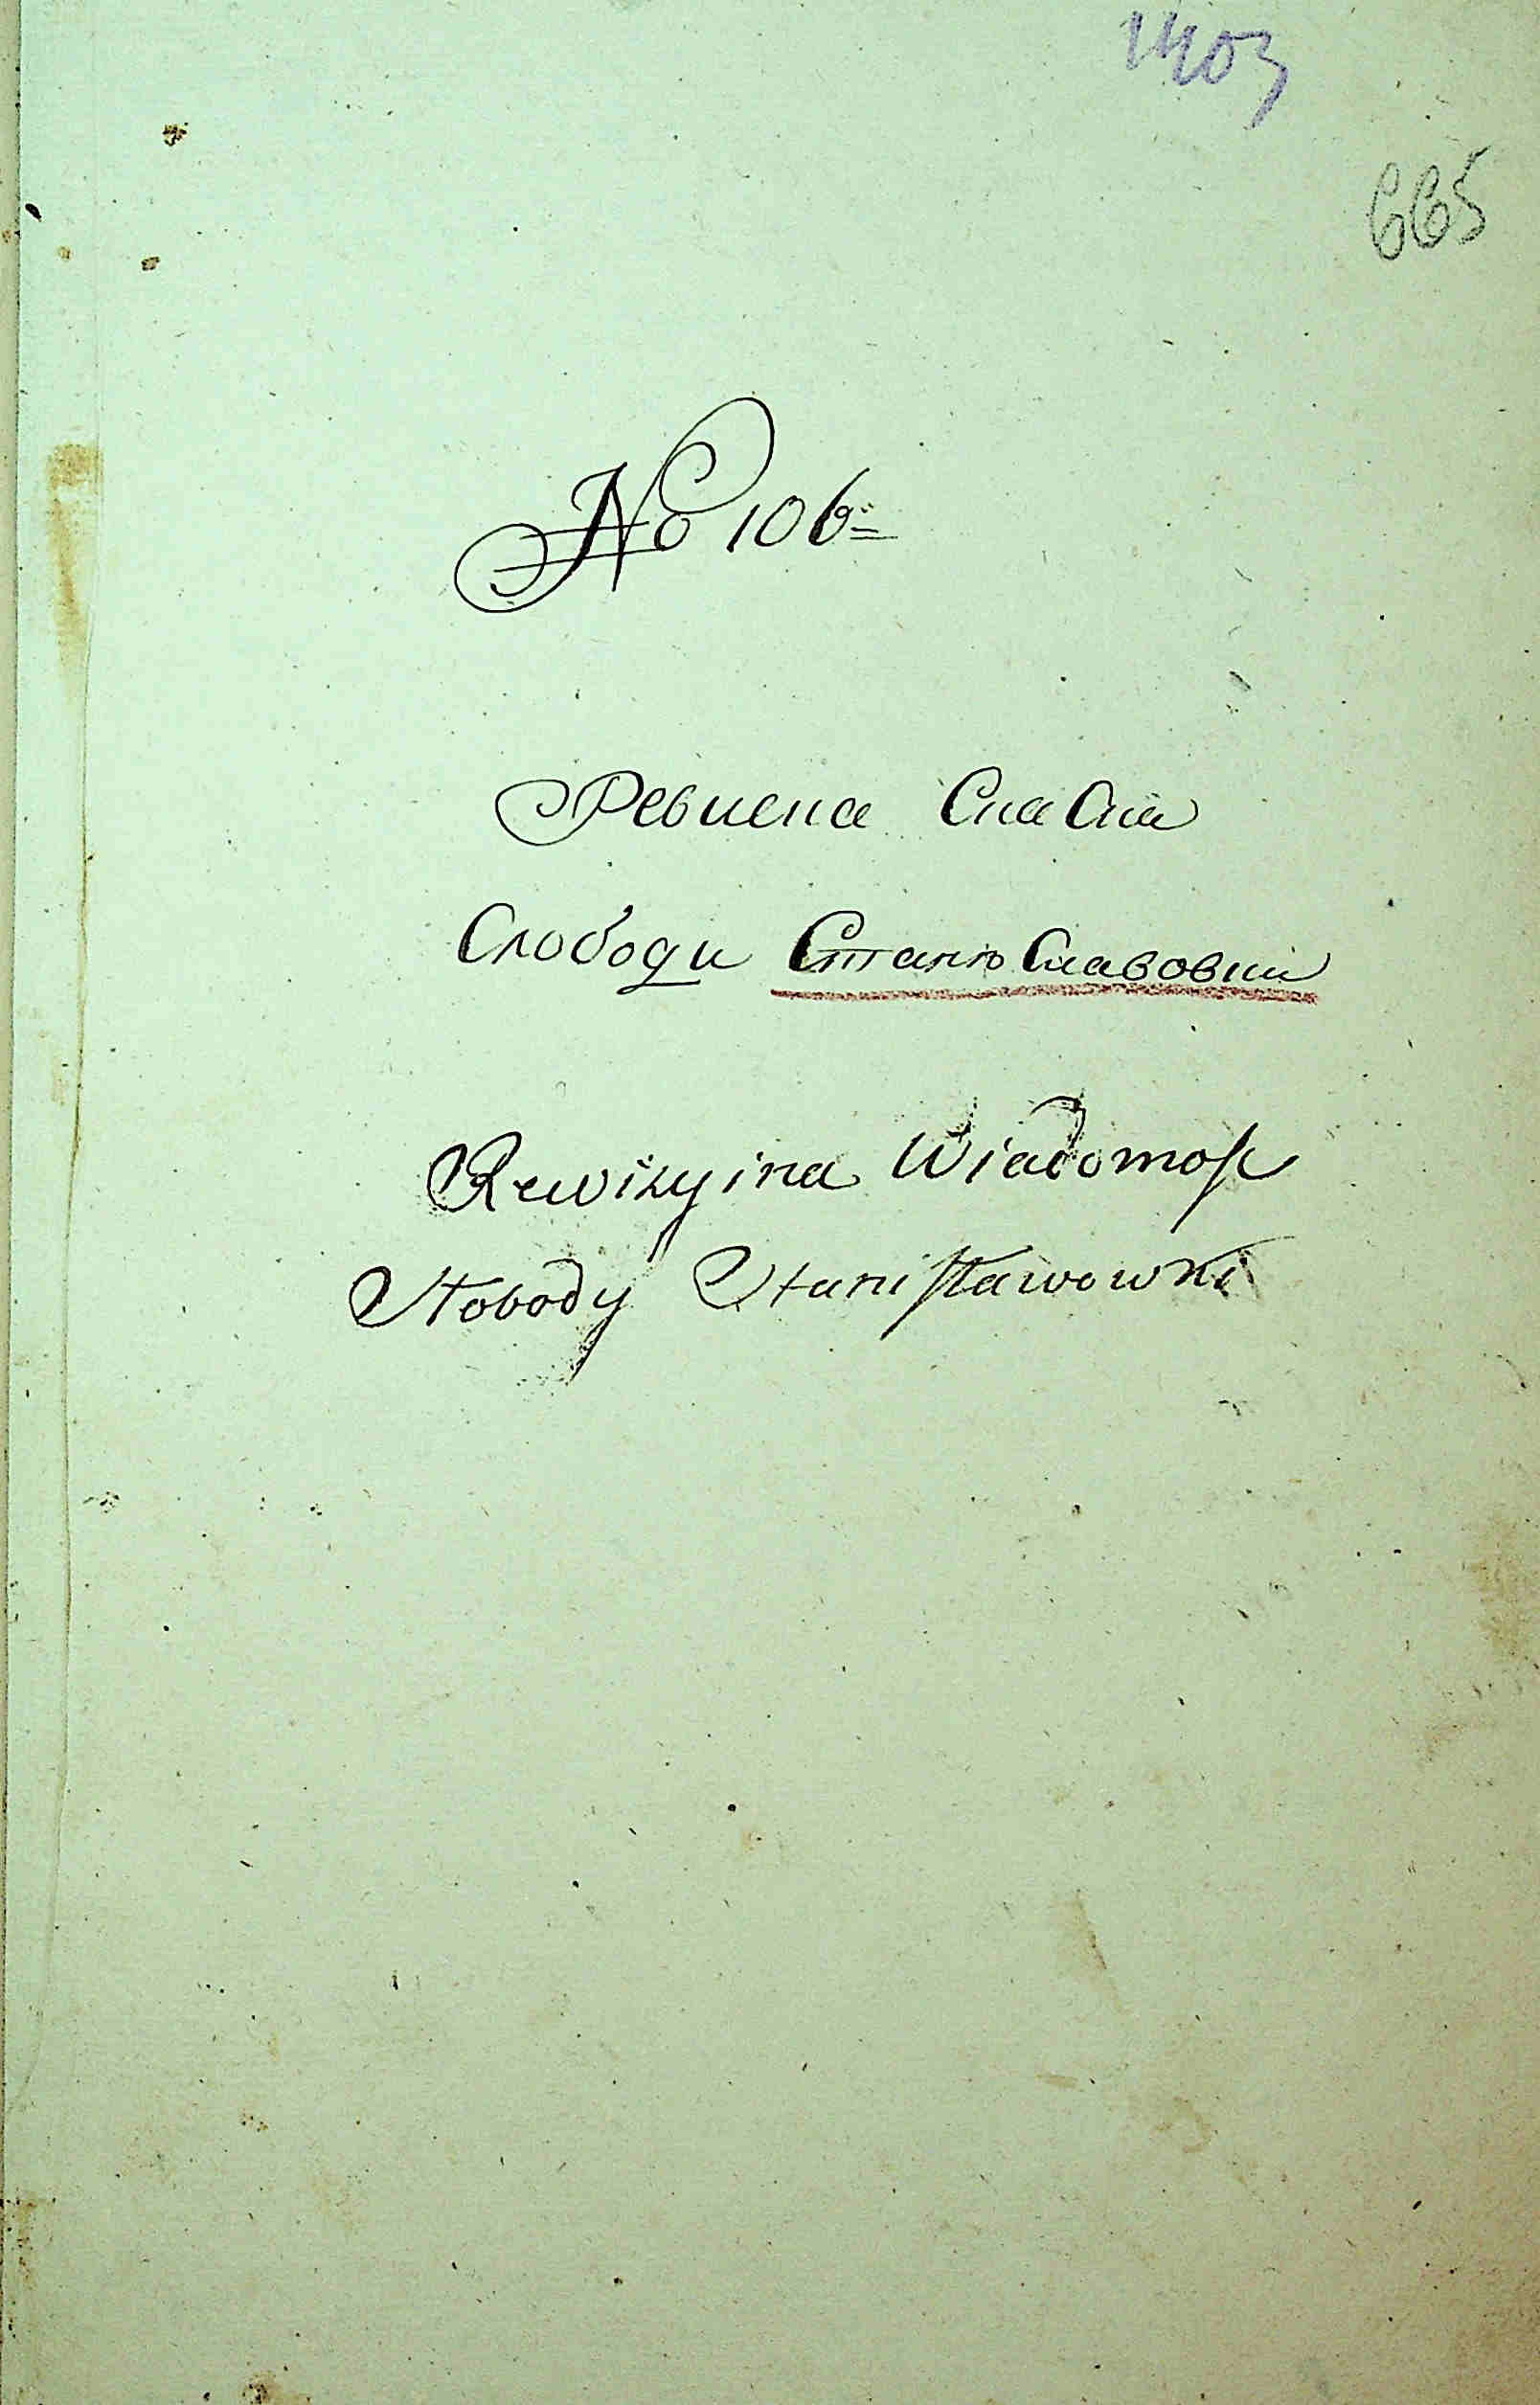 1403
665
№ 106
Ревиска Ска Ска
Слободи Станю Славовки
Rewizyina Wiadomość
Słobody Stanisławowki